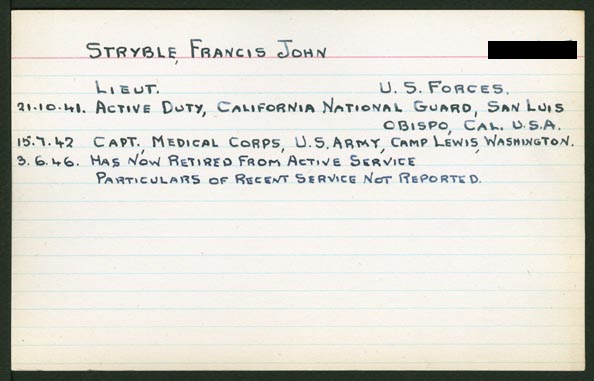 STRYBLE, FRANCIS JOHN
LIEUT. U.S. FORCES.
21.10.41. ACTIVE DUTY, CALIFORNIA NATIONAL GUARD, SAN LUIS
OBISPO, CAL. U.S.A.
15.7.42 CAPT., MEDICAL CORPS, U.S. ARMY, CAMP LEWIS, WASHINGTON.
3.6.46. HAS NOW RETIRED FROM ACTIVE SERVICE
PARTICULARS OF RECENT SERVICE NOT REPORTED.